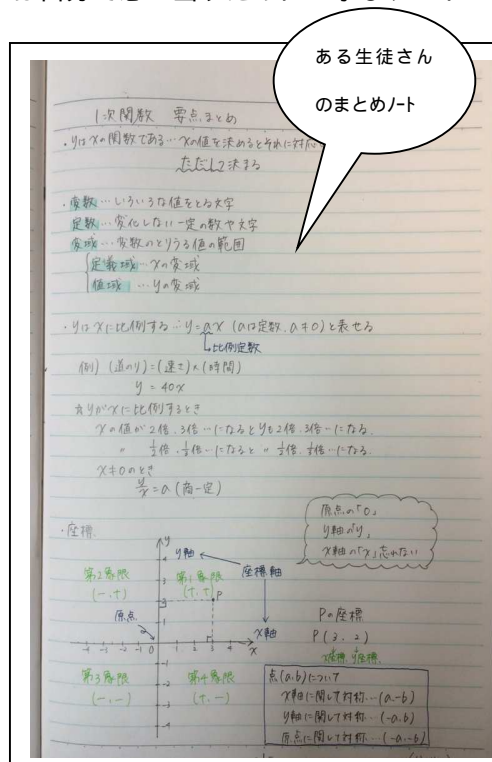 ある生徒さん
のまとめノート
1次関数 要点まとめ
・yはxの関数である…xの値を決めるとそれに対応
ただ1つ決まる
・変数…いろいろな値をとる文字
定数…変化しない一定の数や文字
変域…変数のとりうる値の範囲
定義域…xの変域
値域…yの変域
・yはxに比例する…y=ax (aは定数、a≠0)と表せる
比例定数
例) (道のり)=(速さ)×(時間)
y = 40x
☆yがxに比例するとき
xの値が2倍、3倍…になるとyも2倍、3倍…になる。
〃 1/2倍、1/3倍…になると 〃 1/2倍、1/3倍…になる。
x≠0のとき
y/x = a (商一定)
原点の「0」
y軸の「y」
x軸の「x」忘れない
・座標
y
y軸
座標軸
第2象限
(-,+)
第1象限
(+,+)
P
原点
x軸
-4 -3 -2 -1 0 1 2 3 4 x
第3象限
(-,-)
第4象限
(+,-)
Pの座標
P(3, 2)
x座標 y座標
点(a,b)について
x軸に関して対称…(a,-b)
y軸に関して対称…(-a,b)
原点に関して対称…(-a,-b)